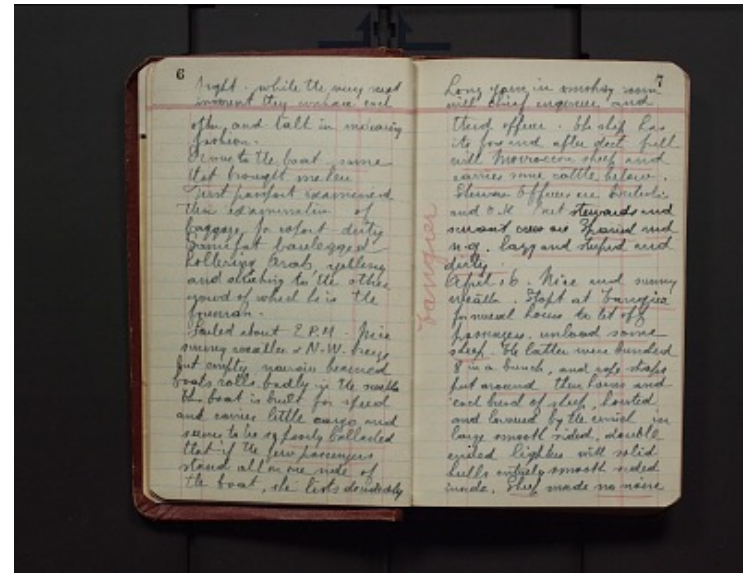 6
night. while the very next
moment they embrace each
other, and talk in
fashion.
to the boat, same
that brought me here
First passport examined
then examination of
baggage for export dirty
barelegged
hollering Arab, yelling
and to the other
of which he is the
foreman.
Sailed about 2 P.M. Nice
sunny weather & N.W. breeze
but empty, narrow beamed
boats rolls badly in the swells
The boat is built for speed
and carries little cargo and
seems to be so poorly ballasted
that if the few passengers
stand all on one side of
the boat, she lists decidedly
7
Long yarn in smoking room
with chief engineer and
third officer. The ship has
its fore end after deck full
with Moroccan sheep and
carries some cattle below.
Officers are British
and O.K. but stewards and
crew are Spanish and
n.g. lazy and stupid and
dirty.
April 16. Nice and sunny
weather. Stopt at Tangier
for several hours to let off
passengers, unload some
sheep. The latter were bundled
8 in a bunch, and rope straps
put around their horns and
each bunch of sheep, hoisted
and lowered by the winch in
large smooth sided, double
ended lighters with solid
hulls entirely smooth sided
inside. Sheep made no noise
Tangier